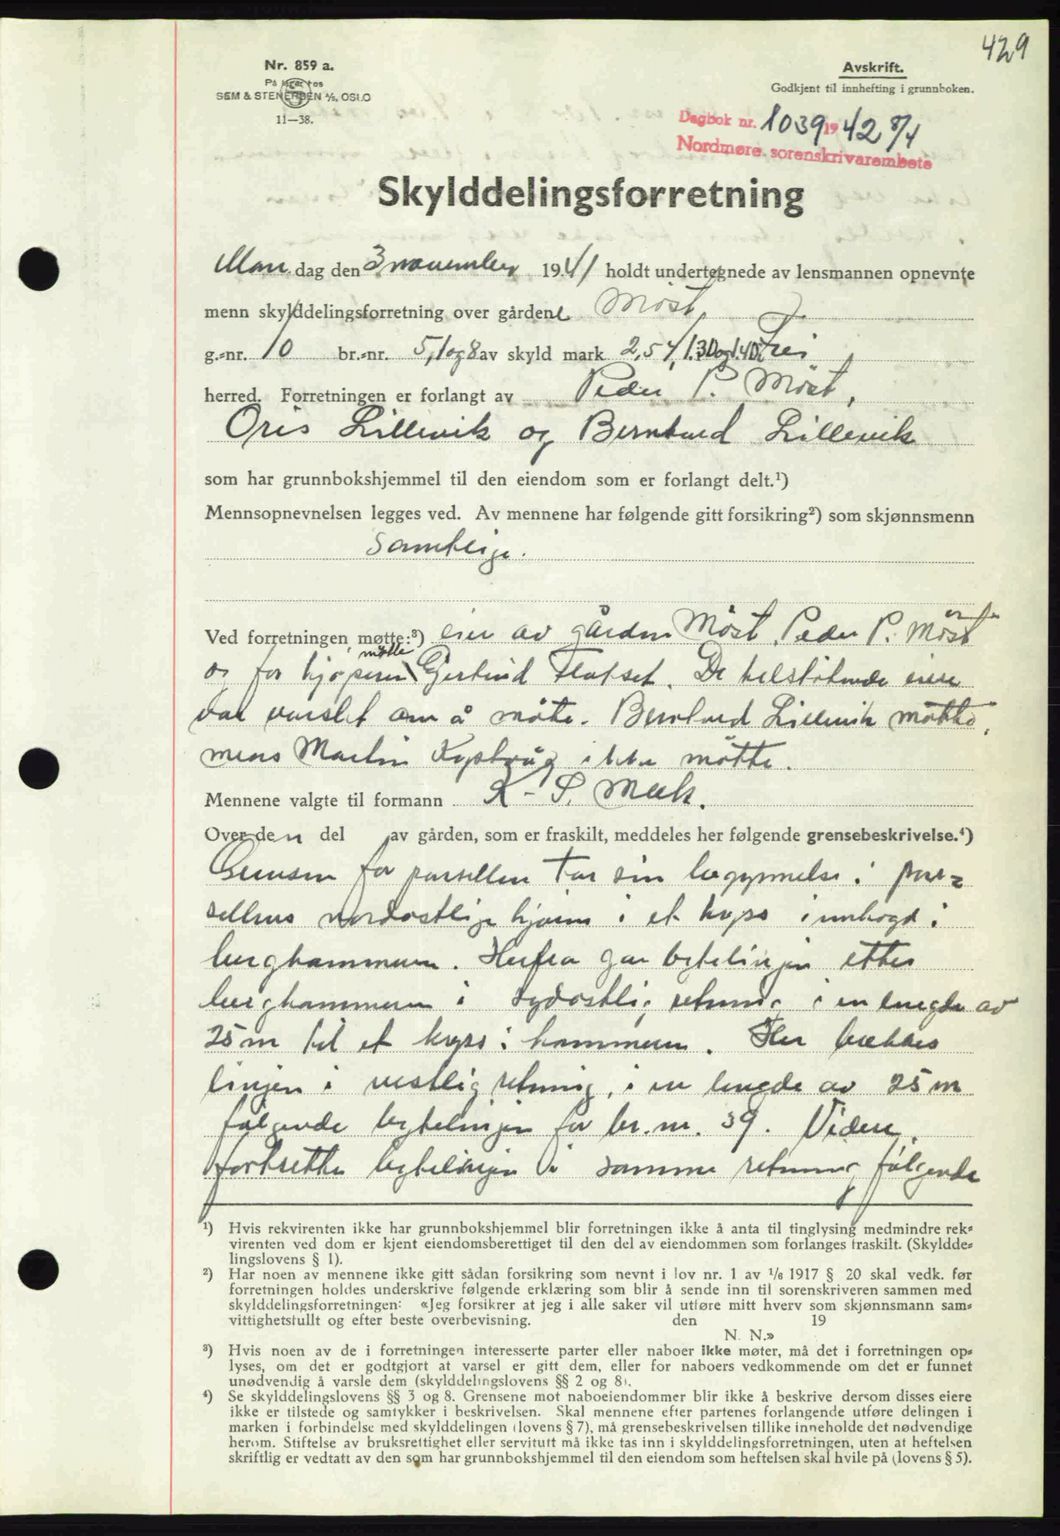 429
Nr. 859 a.
På lager hos
SEM & STENERSEN A/S, OSLO
11—38.
Avskrift.
Godkjent til innhefting i grunnboken.
Dagbok nr. 1039 1942 8/4
Nordmøre sorenskrivarembete
Skylddelingsforretning
Man dag den 3 november 1941 holdt undertegnede av lensmannen opnevnte
menn skylddelingsforretning over gården Möst,
g.-nr. 10 br.-nr. 5, 1 og 8 av skyld mark 2,54, 1.30 og 1.40 i Frei
herred. Forretningen er forlangt av Peder P. Möst,
Oris Lillevik og Bernhard Lillevik
som har grunnbokshjemmel til den eiendom som er forlangt delt.¹)
Mennsopnevnelsen legges ved. Av mennene har følgende gitt forsikring²) som skjønnsmenn
Samtlige.
Ved forretningen møtte:³) eier av gården Möst, Peder P. Möst
og for kjöperen møtte Gjertrud Flatset. De tilstötende eiere
var varslet om å möte. Bernhard Lillevik mötte,
mens Martin ikke mötte.
Mennene valgte til formann K. P. Mæk.
Over den del av gården, som er fraskilt, meddeles her følgende grensebeskrivelse.⁴)
Grensen for parsellen tar sin begynnelse i par-
sellens nordöstlige hjörne i et kryss innhogd i
berghammeren. Herfra går bytelinjen etter
berghammeren i sydöstlig retning i en lengde av
25 m til et kryss i hammeren. Her brekkes
linjen i vestlig retning, i en lengde av 25 m
fölgende bytelinjen for br. nr. 39. Videre
fortsetter bytelinjen i samme retning fölgende
¹) Hvis rekvirenten ikke har grunnbokshjemmel blir forretningen ikke å anta til tinglysing medmindre rek-
virenten ved dom er kjent eiendomsberettiget til den del av eiendommen som forlanges fraskilt. (Skyldde-
lingslovens § 1).
²) Har noen av mennene ikke gitt sådan forsikring som nevnt i lov nr. 1 av 1/6 1917 § 20 skal vedk. før
forretningen holdes underskrive følgende erklæring som blir å sende inn til sorenskriveren sammen med
skylddelingsforretningen: «Jeg forsikrer at jeg i alle saker vil utføre mitt hverv som skjønnsmann sam-
vittighetsfullt og efter beste overbevisning. den 19
N. N.»
³) Hvis noen av de i forretningen interesserte parter eller naboer ikke møter, må det i forretningen op-
lyses, om det er godtgjort at varsel er gitt dem, eller for naboers vedkommende om det er funnet
unødvendig å varsle dem (skylddelingslovens §§ 2 og 8).
⁴) Se skylddelingslovens §§ 3 og 8. Grensene mot naboeiendommer blir ikke å beskrive dersom disses eiere
ikke er tilstede og samtykker i beskrivelsen. Skal mennene efter partenes forlangende utføre delingen i
marken i forbindelse med skylddelingen (lovens § 7), må grensebeskrivelsen tillike inneholde det nødvendige
herom. Stiftelse av bruksrettighet eller servitutt må ikke tas inn i skylddelingsforretningen, uten at heftelsen
skriftlig er vedtatt av den som har grunnbokshjemmel til den eiendom som heftelsen skal hvile på (lovens § 5).